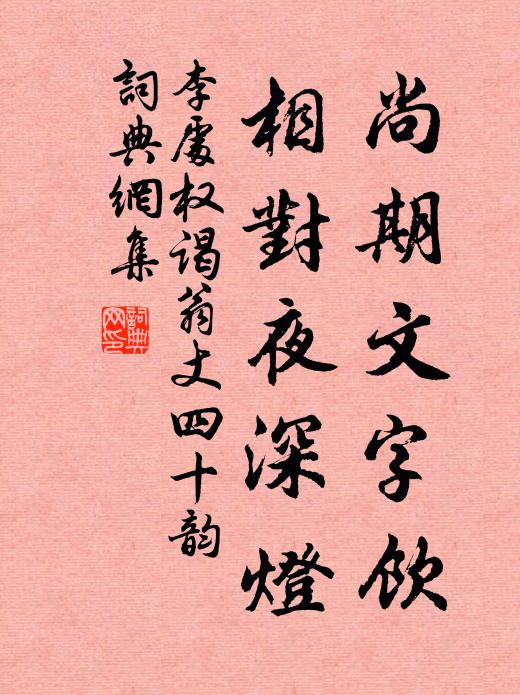 尚期文字飲
相對夜深燈
李處权谒翁丈四十韵
詞典網集
詞典
网印